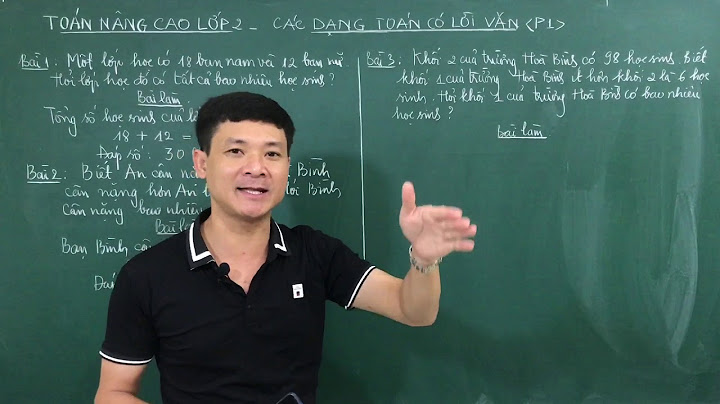 TOÁN NÂNG CAO LỚP 2 - CÁC DẠNG TOÁN CÓ LỜI VĂN <P1>
Bài 1: Một lớp học có 18 bạn nam và 12 bạn nữ
Hỏi lớp học đó có tất cả bao nhiêu học sinh?
Bài làm
Tổng số học sinh của
18 + 12 =
Đáp số: 30
Bài 2: Biết An cân Bình
cân nặng hơn An Bình
cân nặng bao
Bài
Bạn Bình
Bài 3: Khối 2 của trường Hoà Bình có 98 học sinh. Biết
khối 1 của trường Hoà Bình ít hơn khối 2 là 6 học
sinh. Hỏi khối 1 của trường Hoà Bình có bao nhiêu
học sinh?
Bài làm